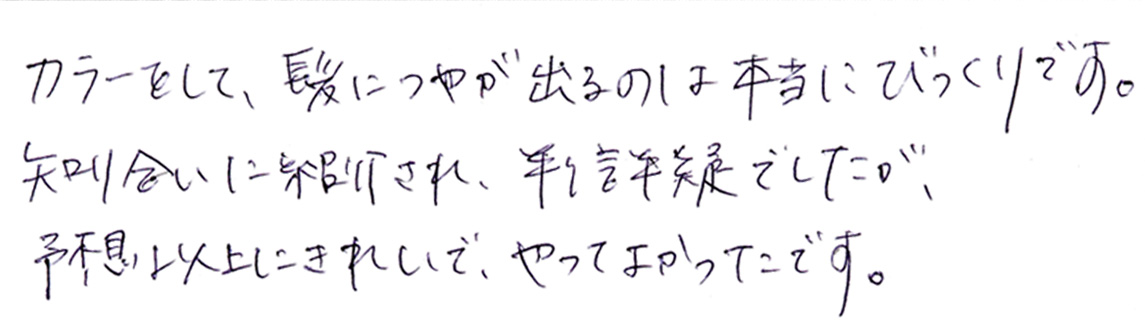 カラーをして、髪につやが出るのは本当にびっくりです。
知り合いに紹介され、半信半疑でしたが、
予想以上にきれいで、やってよかったです。